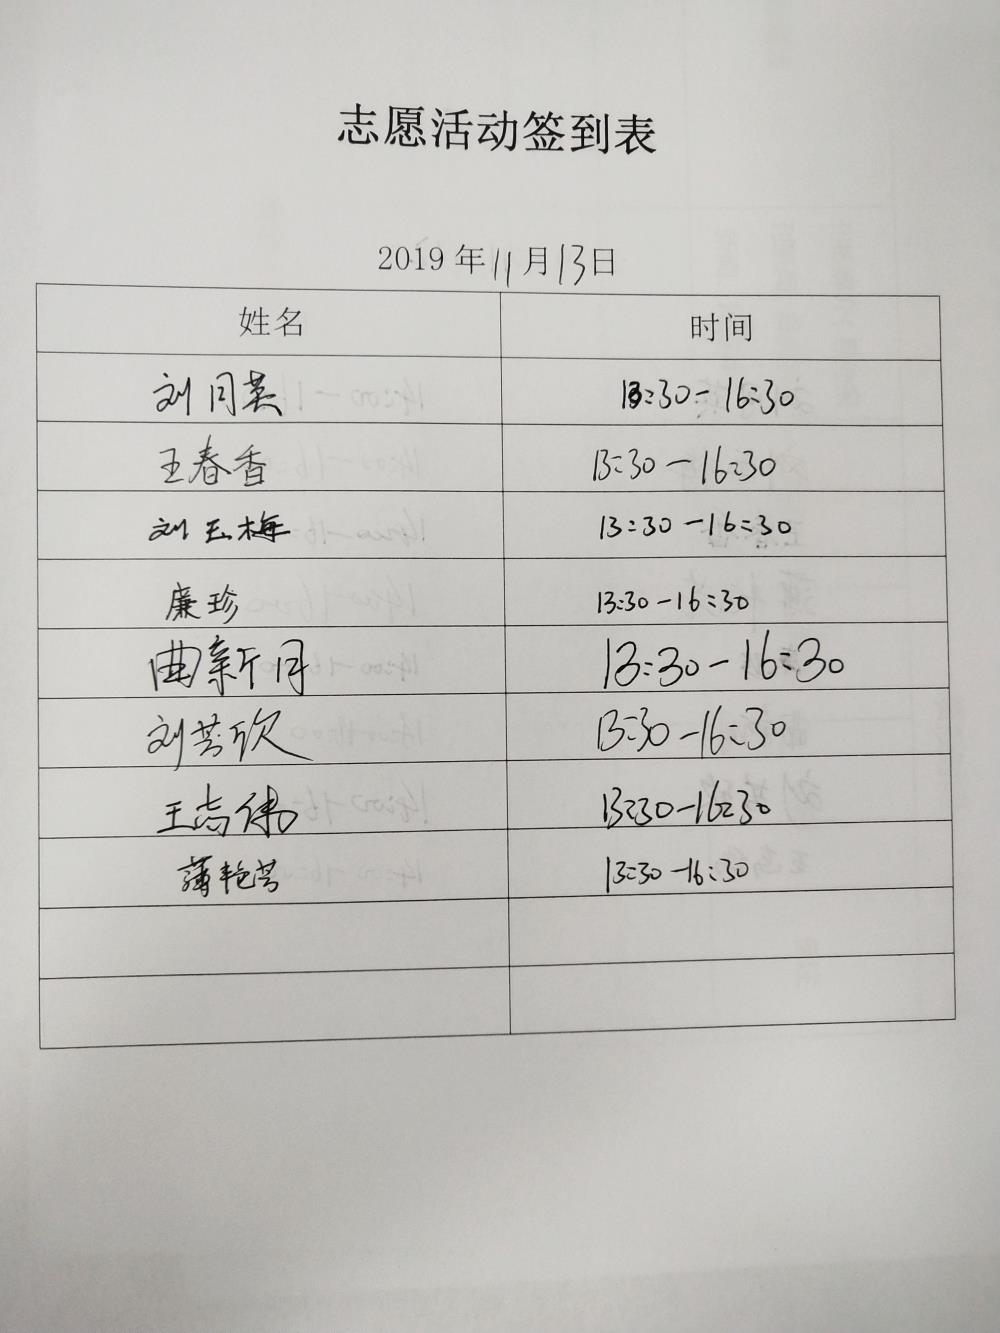 志愿活动签到表
2019年11月13日
姓名 时间
刘月英 13:30-16:30
王春香 13:30-16:30
刘玉梅 13:30-16:30
廉珍 13:30-16:30
曲新月 13:30-16:30
刘芸欣 13:30-16:30
王志伟 13:30-16:30
薄艳芸 13:30-16:30